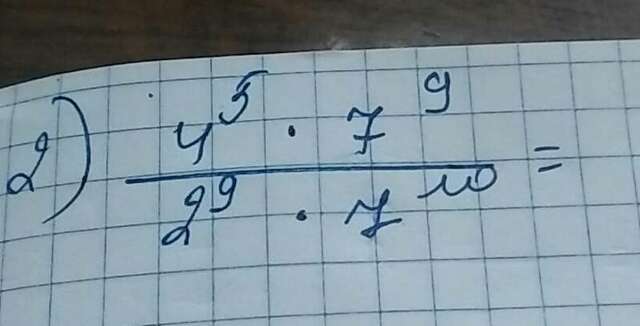 2) \frac{4^5 \cdot 7^9}{2^9 \cdot 7^{10}} =